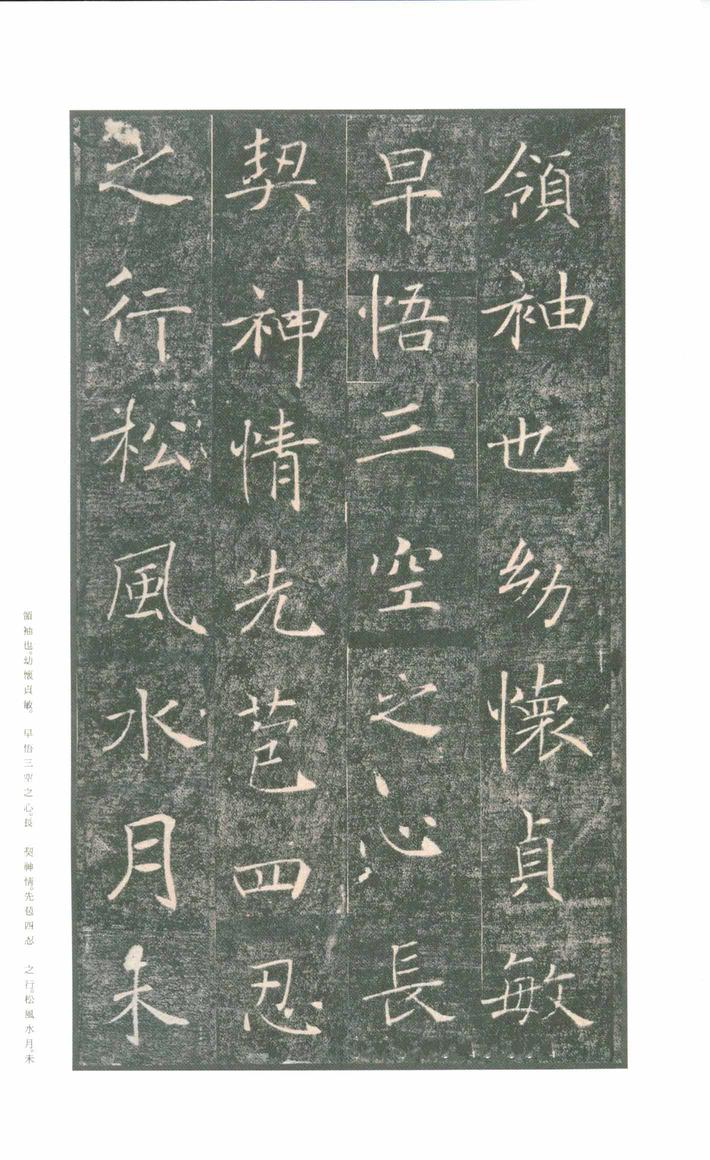 領袖也幼懷貞敏
早悟三空之心長
契神情先苞四忍
之行松風水月未
領袖也。幼懷貞敏。 早悟三空之心。長 契神情。先苞四忍 之行。松風水月。未